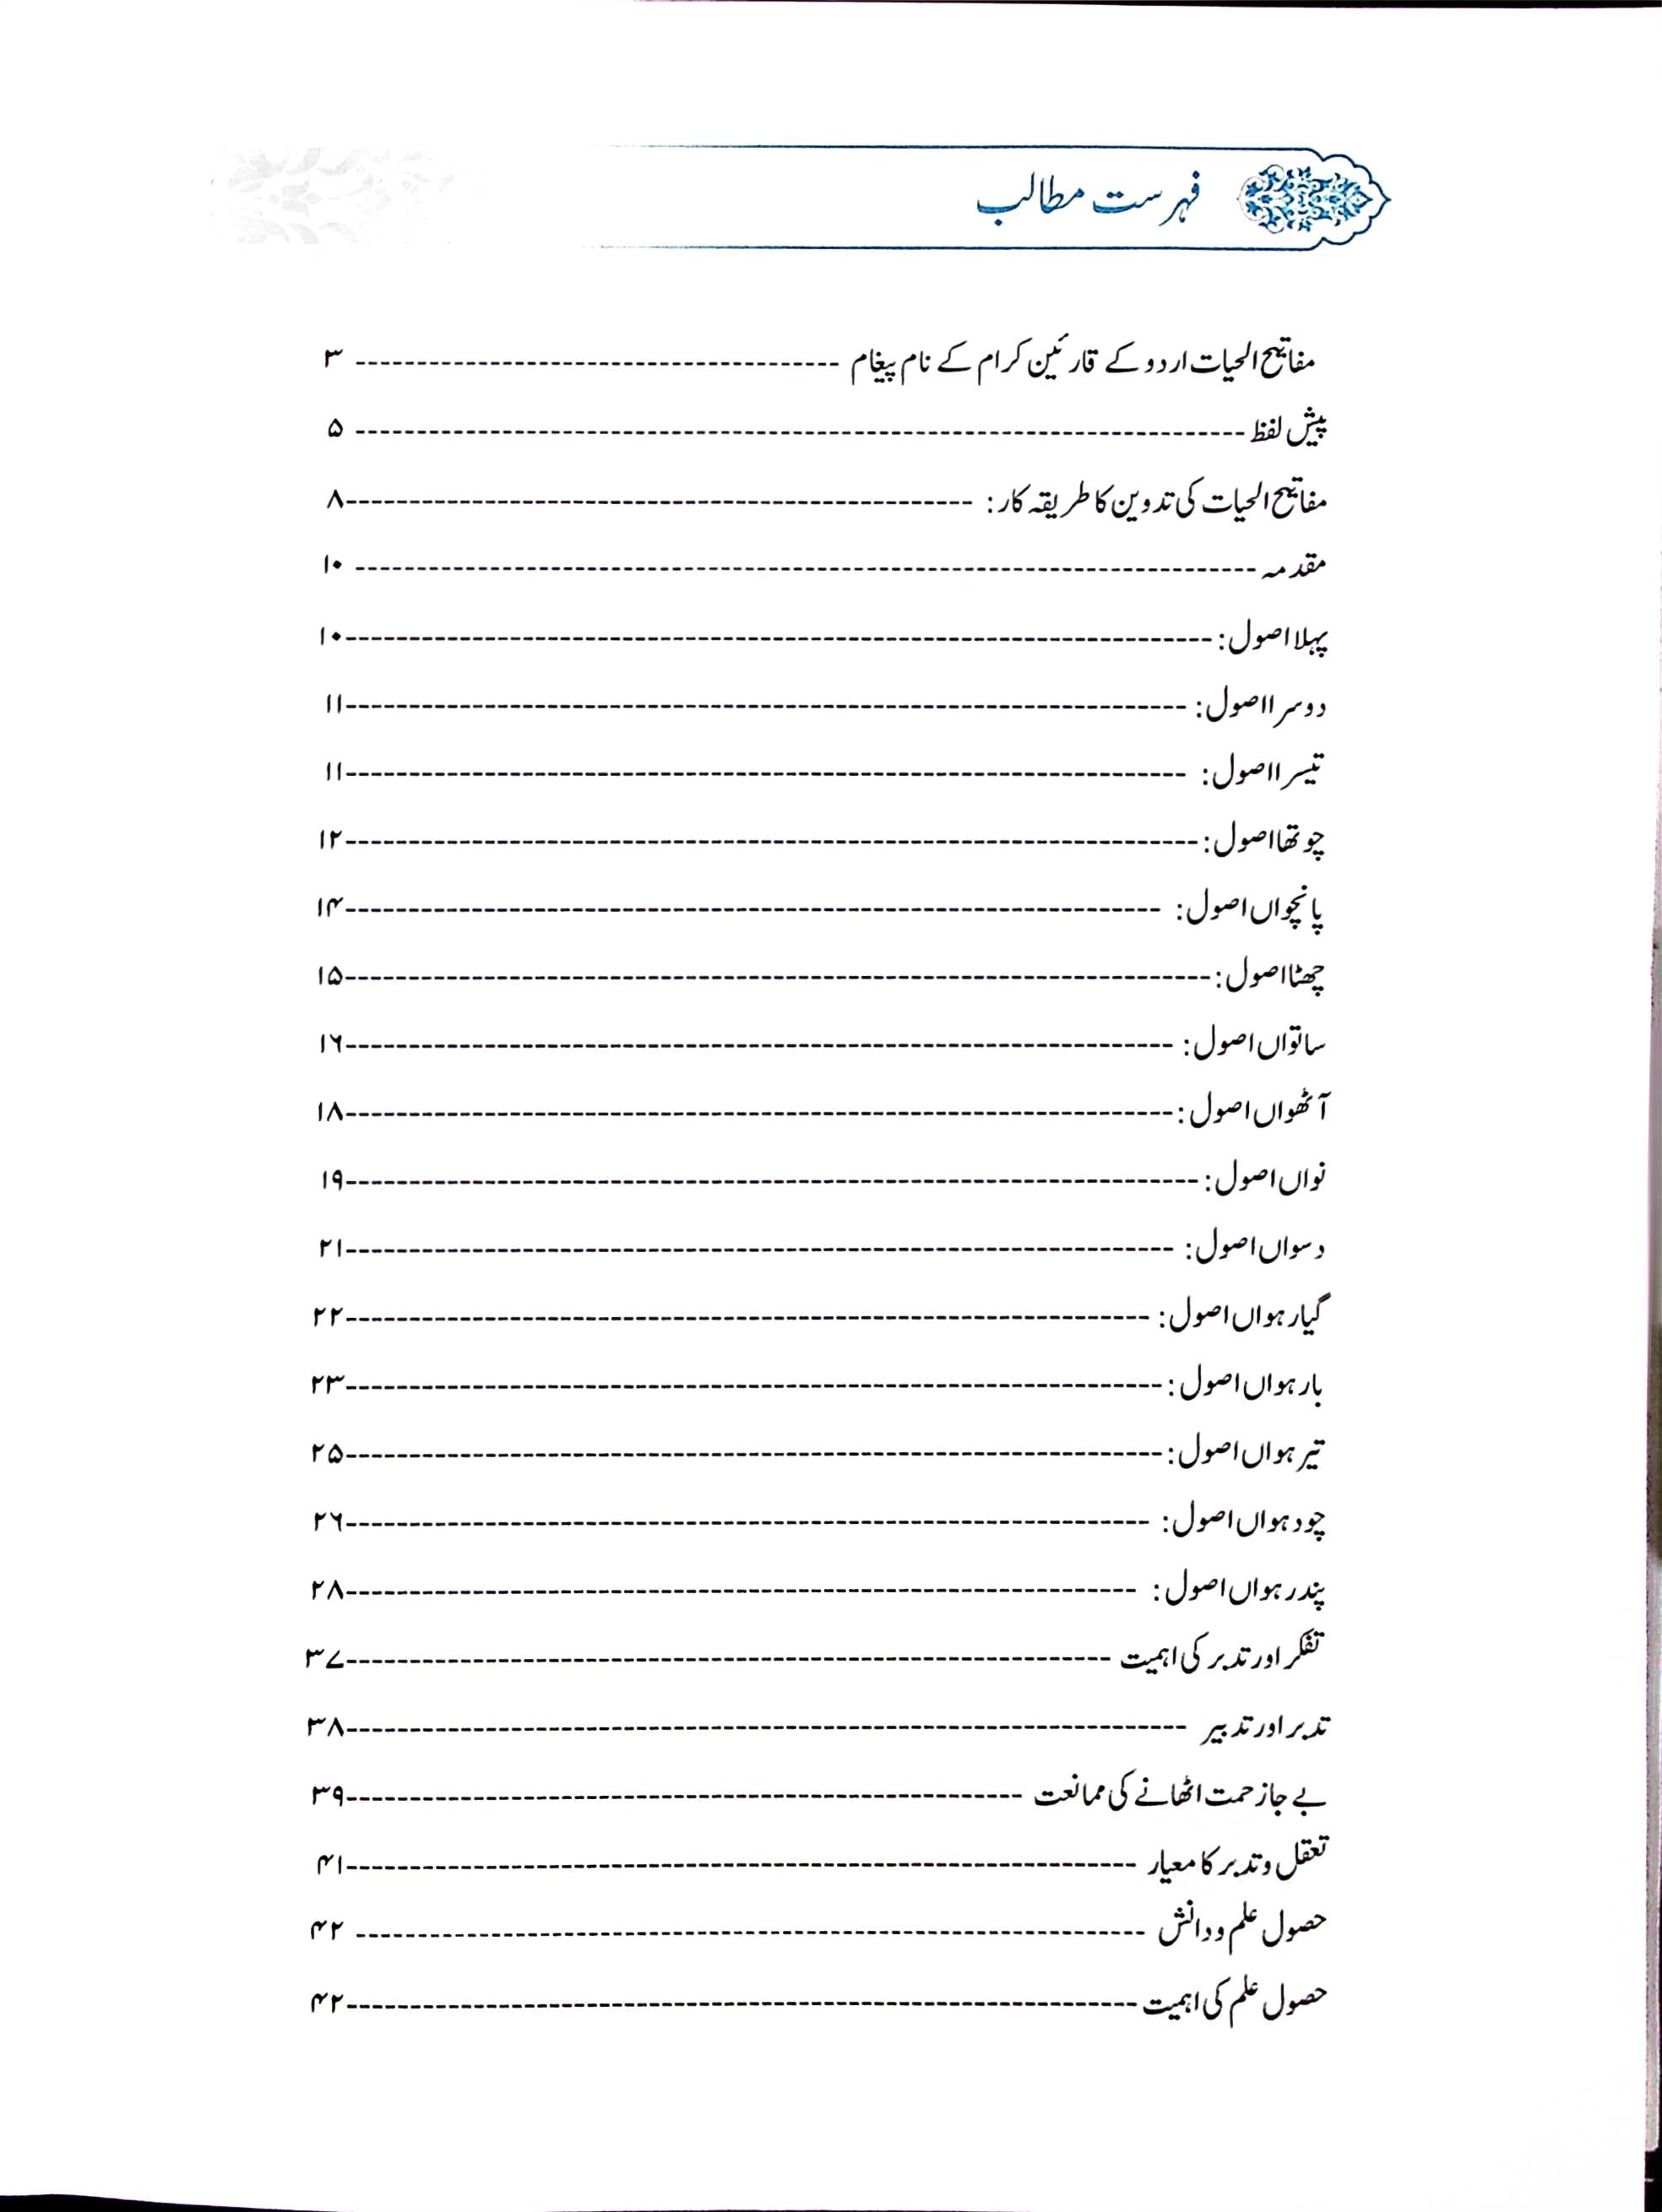 فہرست مطالب
مفاتیح الحیات اردو کے قارئین کرام کے نام پیغام ---------------------------------------- ۳
پیش لفظ ---------------------------------------- ۵
مفاتیح الحیات کی تدوین کا طریقہ کار: ---------------------------------------- ۸
مقدمہ ---------------------------------------- ۱۰
پہلا اصول: ---------------------------------------- ۱۰
دوسرا اصول: ---------------------------------------- ۱۱
تیسرا اصول: ---------------------------------------- ۱۱
چوتھا اصول: ---------------------------------------- ۱۲
پانچواں اصول: ---------------------------------------- ۱۴
چھٹا اصول: ---------------------------------------- ۱۵
ساتواں اصول: ---------------------------------------- ۱۶
آٹھواں اصول: ---------------------------------------- ۱۸
نواں اصول: ---------------------------------------- ۱۹
دسواں اصول: ---------------------------------------- ۲۱
گیارہواں اصول: ---------------------------------------- ۲۲
بارہواں اصول: ---------------------------------------- ۲۳
تیرہواں اصول: ---------------------------------------- ۲۵
چودہواں اصول: ---------------------------------------- ۲۶
پندرہواں اصول: ---------------------------------------- ۲۸
تفکر اور تدبر کی اہمیت ---------------------------------------- ۳۷
تدبر اور تدبیر ---------------------------------------- ۳۸
بے جا زحمت اٹھانے کی ممانعت ---------------------------------------- ۳۹
تعقل و تدبر کا معیار ---------------------------------------- ۴۱
حصول علم و دانش ---------------------------------------- ۴۲
حصول علم کی اہمیت ---------------------------------------- ۴۲